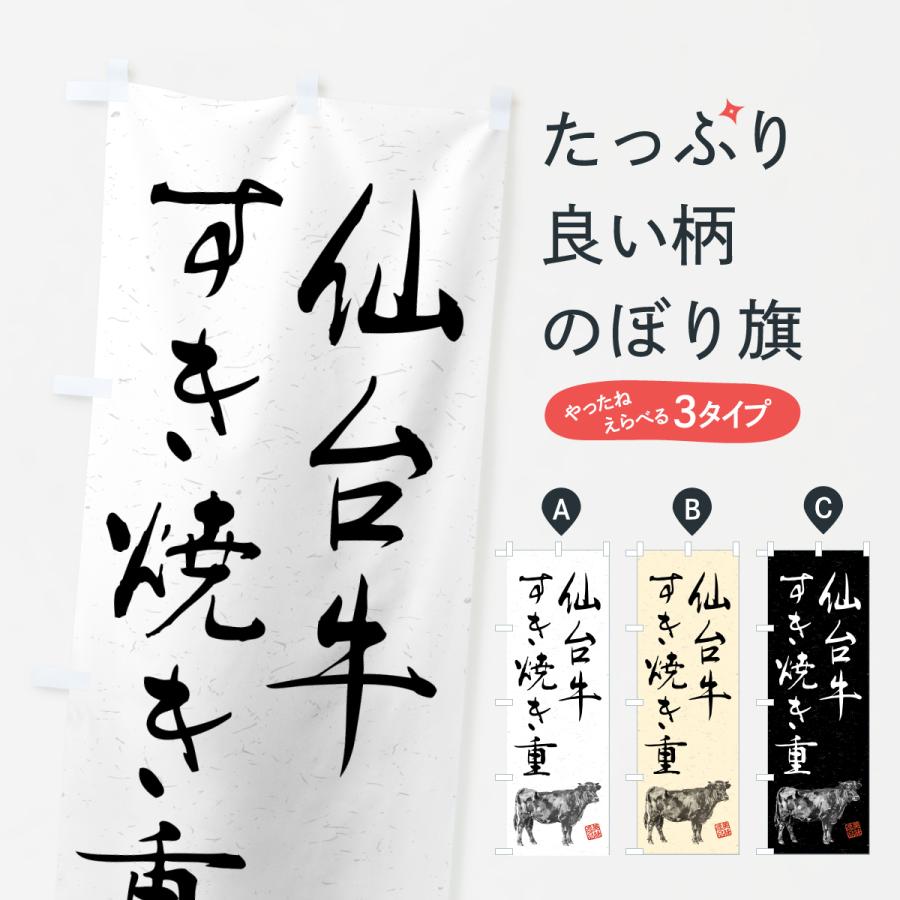 仙台牛
すき焼き重
たっぷり
良い柄
のぼり旗
やったね
えらべる
3タイプ
A
B
C
仙台牛
すき焼き重
仙台牛
すき焼き重
仙台牛
すき焼き重